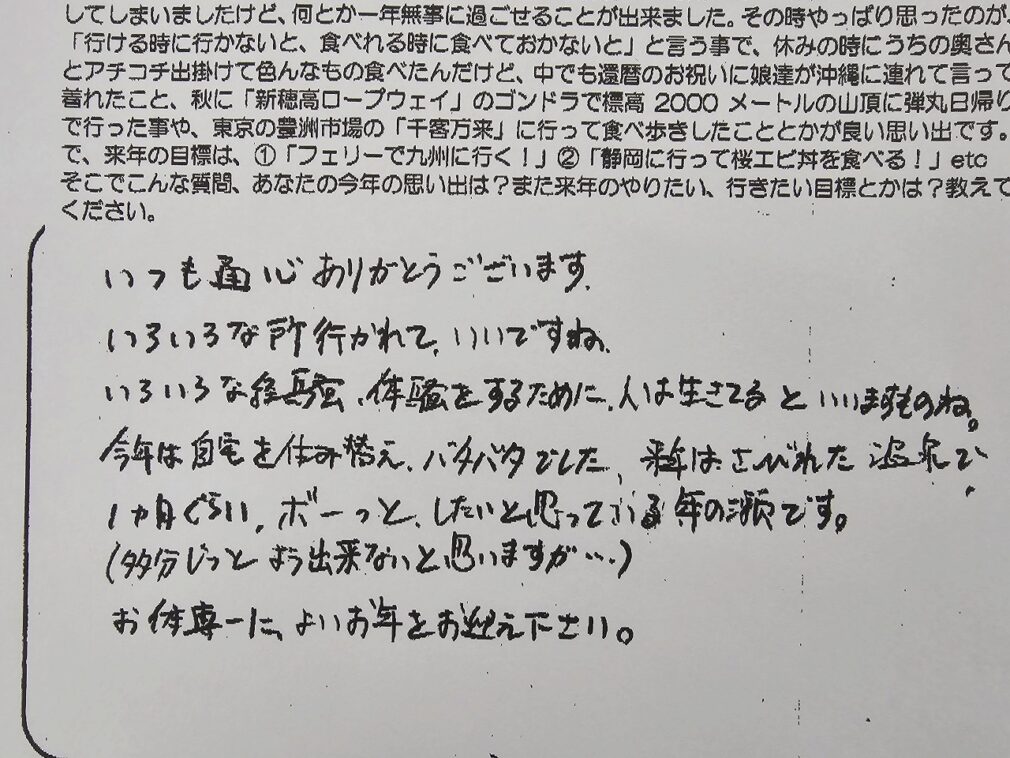 してしまいましたけど、何とか一年無事に過ごせることが出来ました。その時やっぱり思ったのが、
「行ける時に行かないと、食べれる時に食べておかないと」と言う事で、休みの時にうちの奥さん
とアチコチ出掛けて色んなもの食べたんだけど、中でも還暦のお祝いに娘達が沖縄に連れて言って
着れたこと、秋に「新穂高ロープウェイ」のゴンドラで標高 2000 メートルの山頂に弾丸日帰り
で行った事や、東京の豊洲市場の「千客万来」に行って食べ歩きしたこととかが良い思い出です。
で、来年の目標は、①「フェリーで九州に行く！」②「静岡に行って桜エビ丼を食べる！」etc
そこでこんな質問、あなたの今年の思い出は？また来年のやりたい、行きたい目標とかは？教えて
ください。
いつも通心ありがとうございます。
いろいろな所行かれて、いいですね。
いろいろな経験、体験をするために、人は生きてると いいますものね。
今年は自宅を住み替え、バタバタでした、来年はさびれた温泉で、
1カ月ぐらい、ボーっと、したいと思っている年の瀬です。
(多分じっと よう出来ないと思いますが…)
お体専一に、よいお年をお迎え下さい。